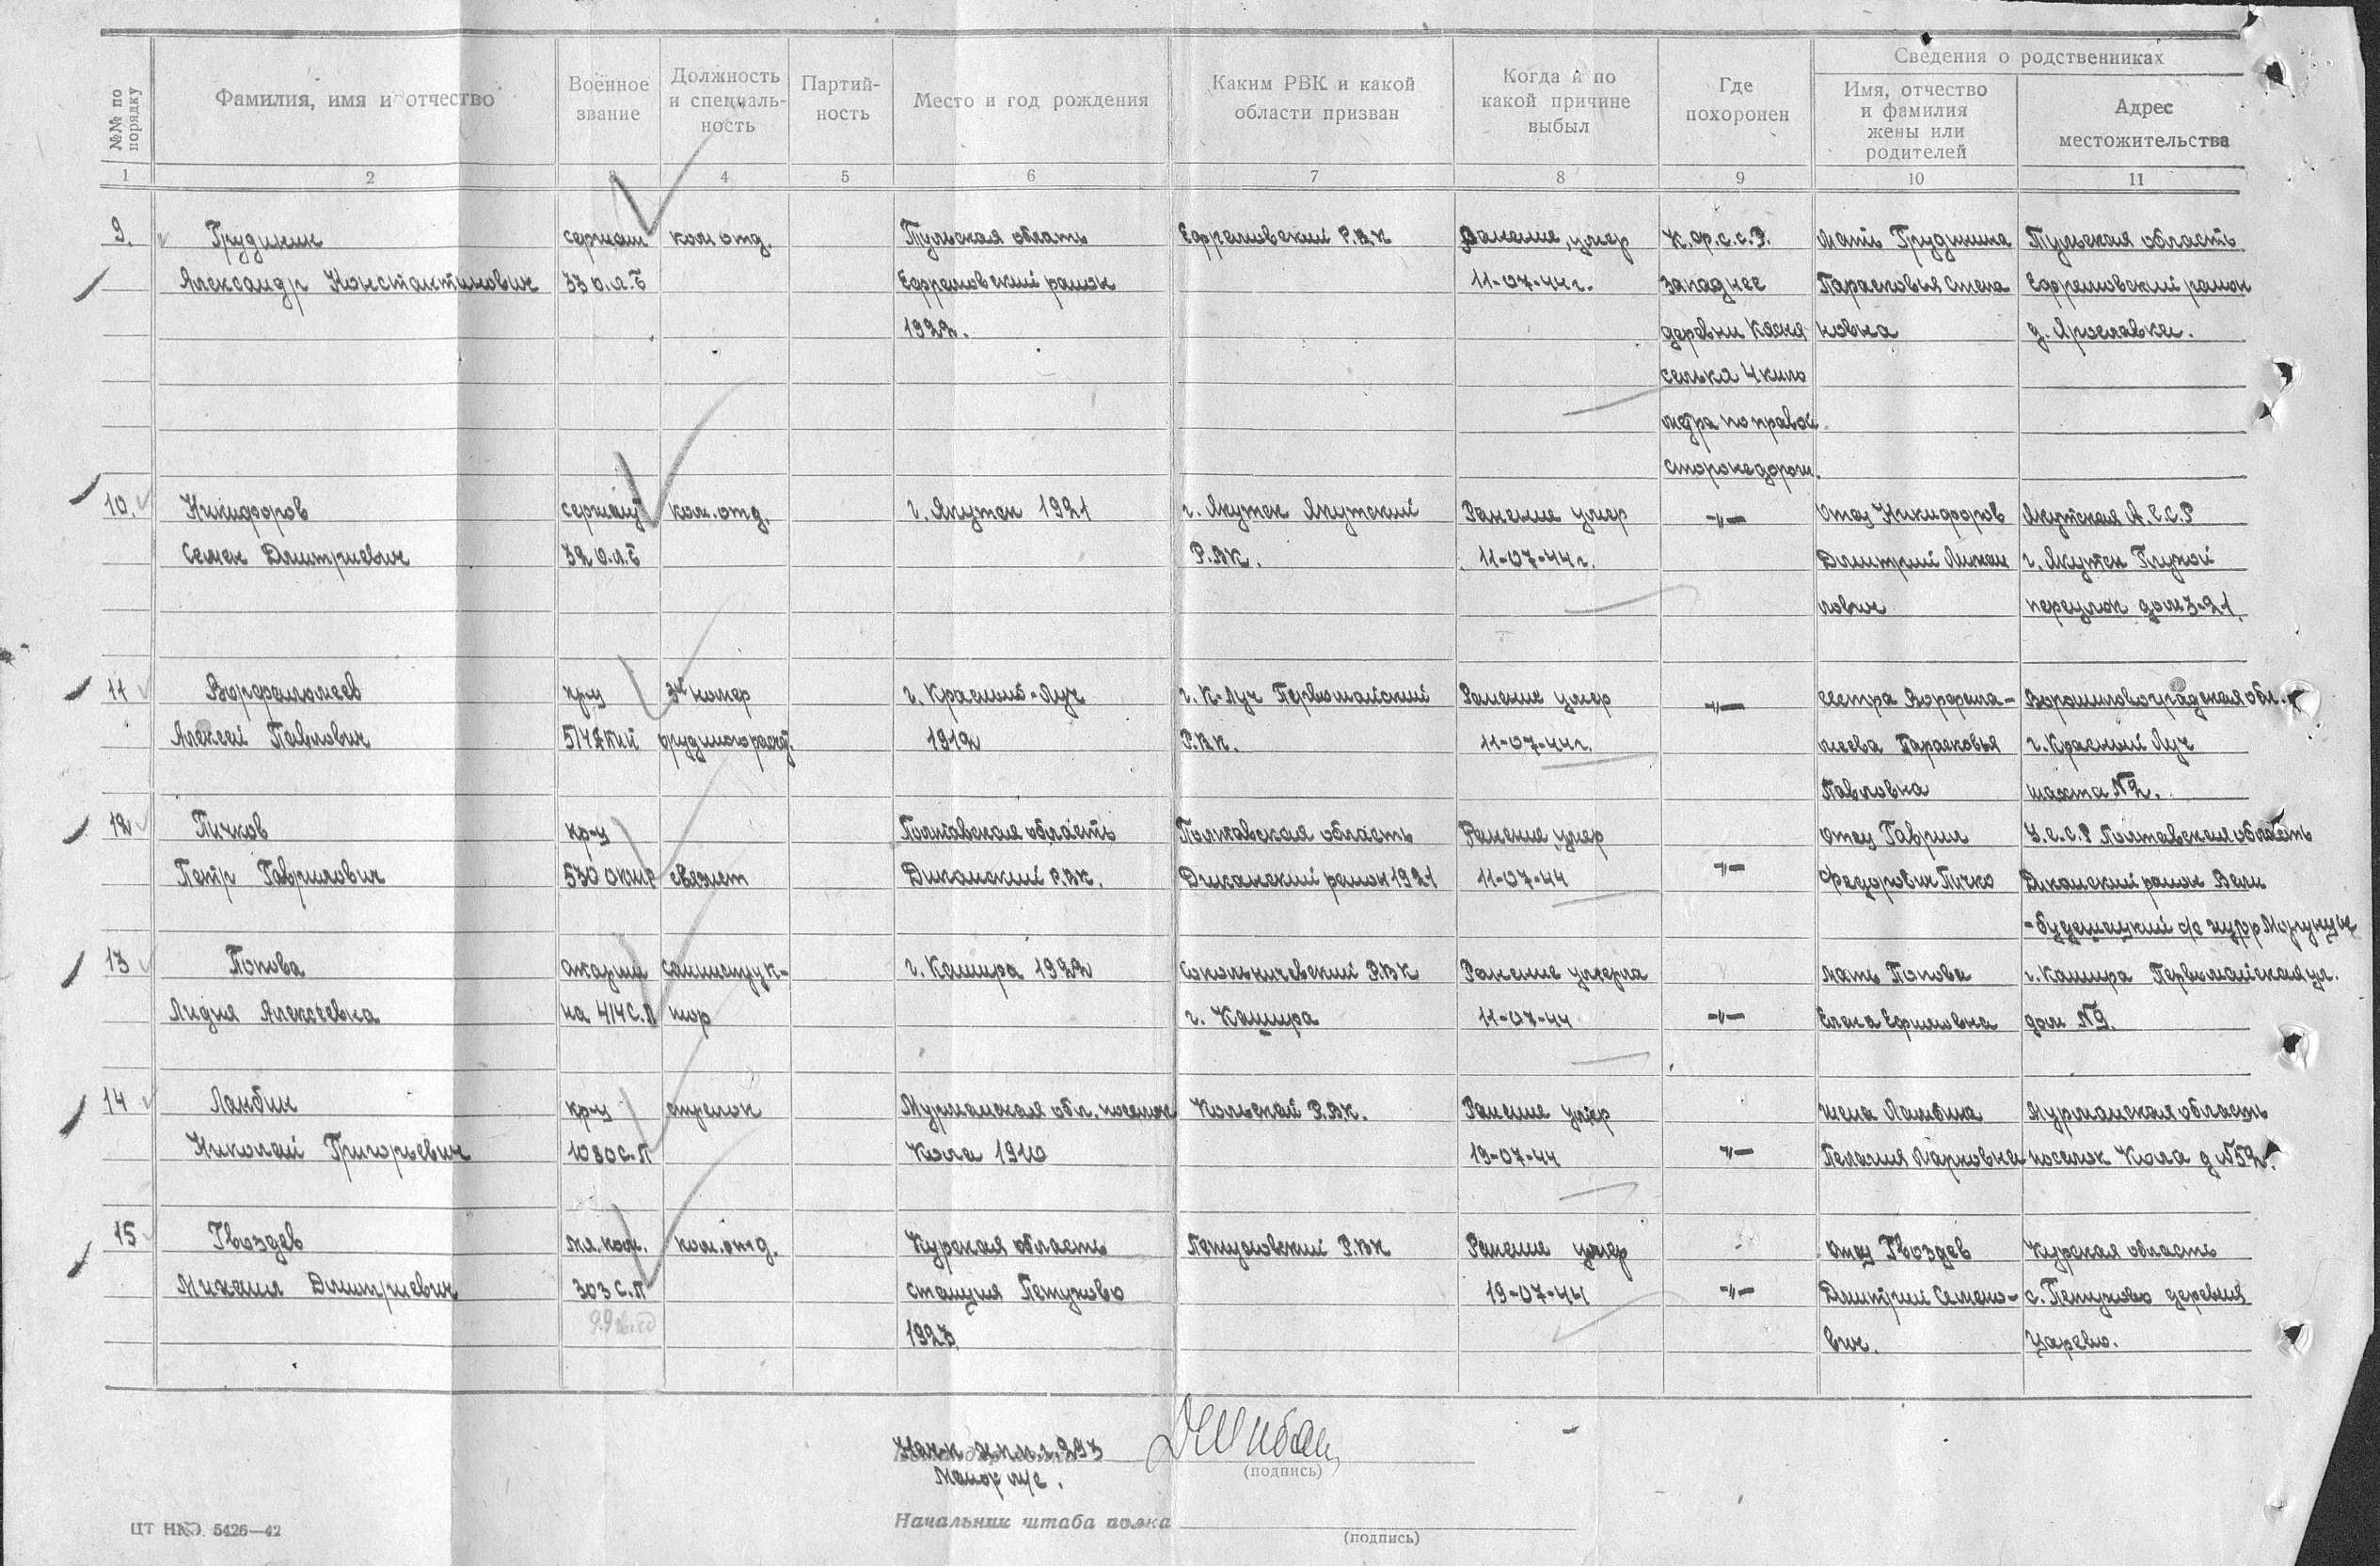 №№ по порядку
Фамилия, имя и отчество
Военное звание
Должность и специаль-ность
Партий-ность
Место и год рождения
Каким РВК и какой области призван
Когда и по какой причине выбыл
Где похоронен
Сведения о родственниках
Имя, отчество и фамилия жены или родителей
Адрес местожительства
1 2 3 4 5 6 7 8 9 10 11
9. Грудинин сержант ком отд. Тульская область Ефремовский Р.В.К Ранение, умер К.Ф.С.С.Р. Мать Грудинина Тульская область
Александр Константинович 33 о.л.б Ефремовский район 11-07-44г. западнее Парасковья Степа Ефремовский район
1922. деревни Кясня новна д. Ярославка.
селька 4 кило
метра по правой
стороне дороги.
10. Никифоров сержант ком.отд. г. Якутск 1921 г. Якутск Якутский Ранение умер -"- Отец Никифоров Якутская А.С.С.Р
Семен Дмитриевич 32 о.л.б Р.ВК. 11-07-44г. Дмитрий г. Якутск Глухой
лович переулок дом 3-21.
11 Ворфоломеев кр-ц 3й номер г. Красный-Луч г. К-Луч Первомайский Ранение умер -"- сестра Ворфола-
Ворошиловоградская обл.
Алексей Павлович орудийного расчёт. 1912 Р.ВК. 11-07-44г. меева Парасковья г. Красный Луч
Павловна шахта №2.
12 Пичков кр-ц Полтавская область Полтавская область Ранение умер отец Гаврил У.С.С.Р Полтавская область
Петр Гаврилович связист Диканский Р.ВК. Диканский район 1921 11-07-44 -"- Федорович Пичко Диканский район Вели
13 Попова санинструк- г. Кашира 1922 Р.ВК Ранение умерла мать Попова г. Кашира Первомайская ул.
Лидия Алексеевна на 414 С.П тор г. Кашира 11-07-44 -"- Елена Ефимовна дом №9.
14 Ланбин кр-ц стрелок Мурманская обл. поселок Кольский Р.ВК. Ранение умер жена Ламбина Мурманская область
Николай Григорьевич 1080 С.П Кола 1910 19-07-44 -"- Пелагия Марковна поселок Кола д №52.
15 Гвоздев мл.ком. ком.отд. Курская область Петуховский Р.ВК Ранение умер отец Гвоздев Курская область
Михаил Дмитриевич 303 С.П станция Петухово 19-07-44 -"- Дмитрий Семено- с. Петухово деревня
1923 вич. Царево.
Начк 293
Майор м/с.
(подпись)
Начальник штаба полка
(подпись)
ЦТ НКО. 5426—42